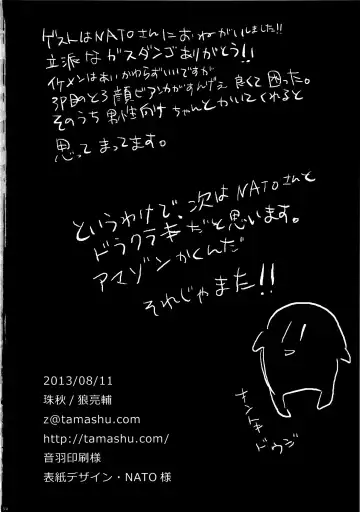 ゲストはNATOさんにおねがいしました!!
立派なガスダンゴありがとう!!
イケメンはあいかわらずいいですが
3P目のとろ顔ビアンカがすんげえ良くて困った。
そのうち男性向けちゃんとかいてくれると
思ってまってます。
というわけで、次はNATOさんと
ドラクラ本だと思います。
アマゾンかくんだ
それじゃまた!!
2013/08/11
珠秋/狼亮輔
z@tamashu.com
http://tamashu.com/
音羽印刷様
表紙デザイン・NATO様